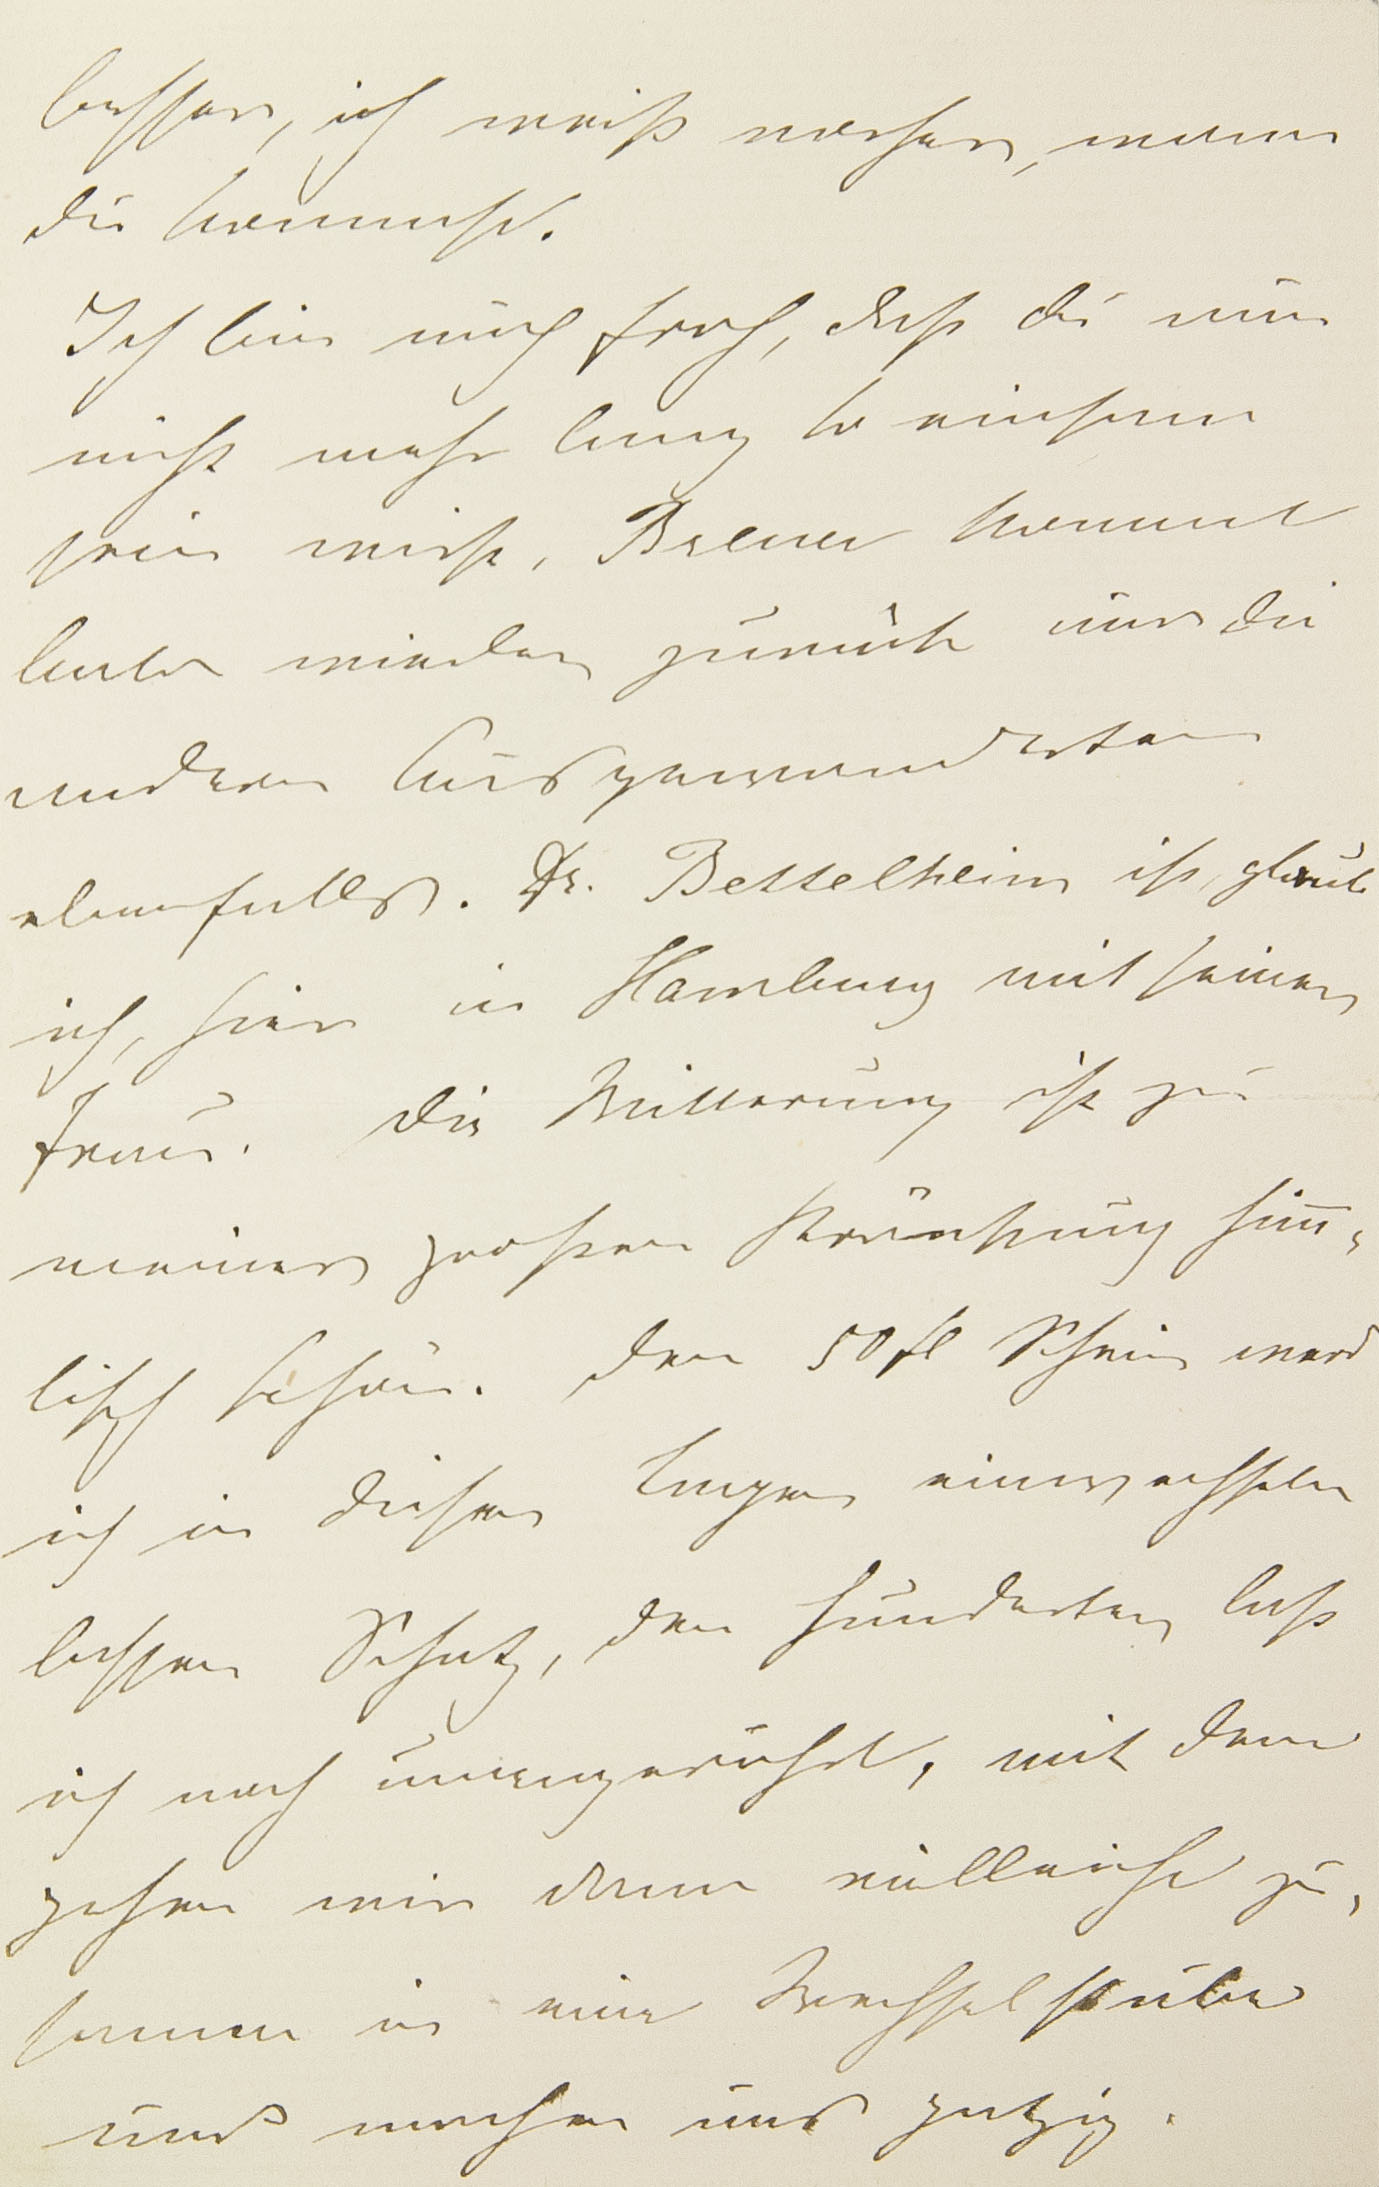 besser, ich weiß vorher, wann
du kommst.
Ich bin auch froh, daß du nun
nicht mehr lang so einsam
sein wirst, Breuer kommt
bald wieder zurück und die
andern Ausgewanderten
ebenfalls. Dr. Bettelheim ist, glaub
ich, hier in Hamburg mit seiner
Frau. Die Witterung ist zu
meiner großen Kränkung himm=
lisch schön. Den 50 fl Schein werd
ich in diesen Tagen einwechseln
lassen Schatz, den Hunderter laß
ich noch unangerührt, mit dem
gehen wir dann vielleicht zu=
sammen in eine Wechselstube
und machen uns patzig.